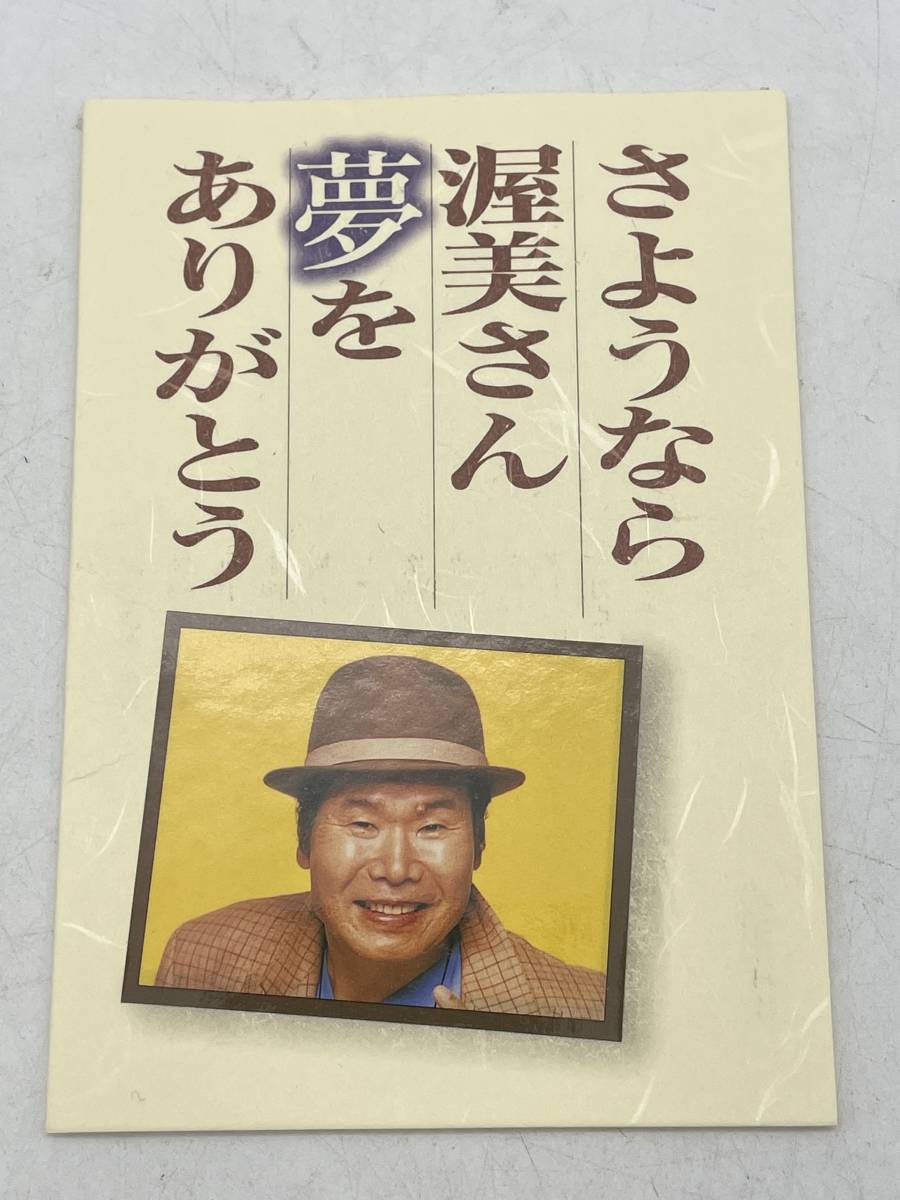 さようなら
渥美さん
夢を
ありがとう